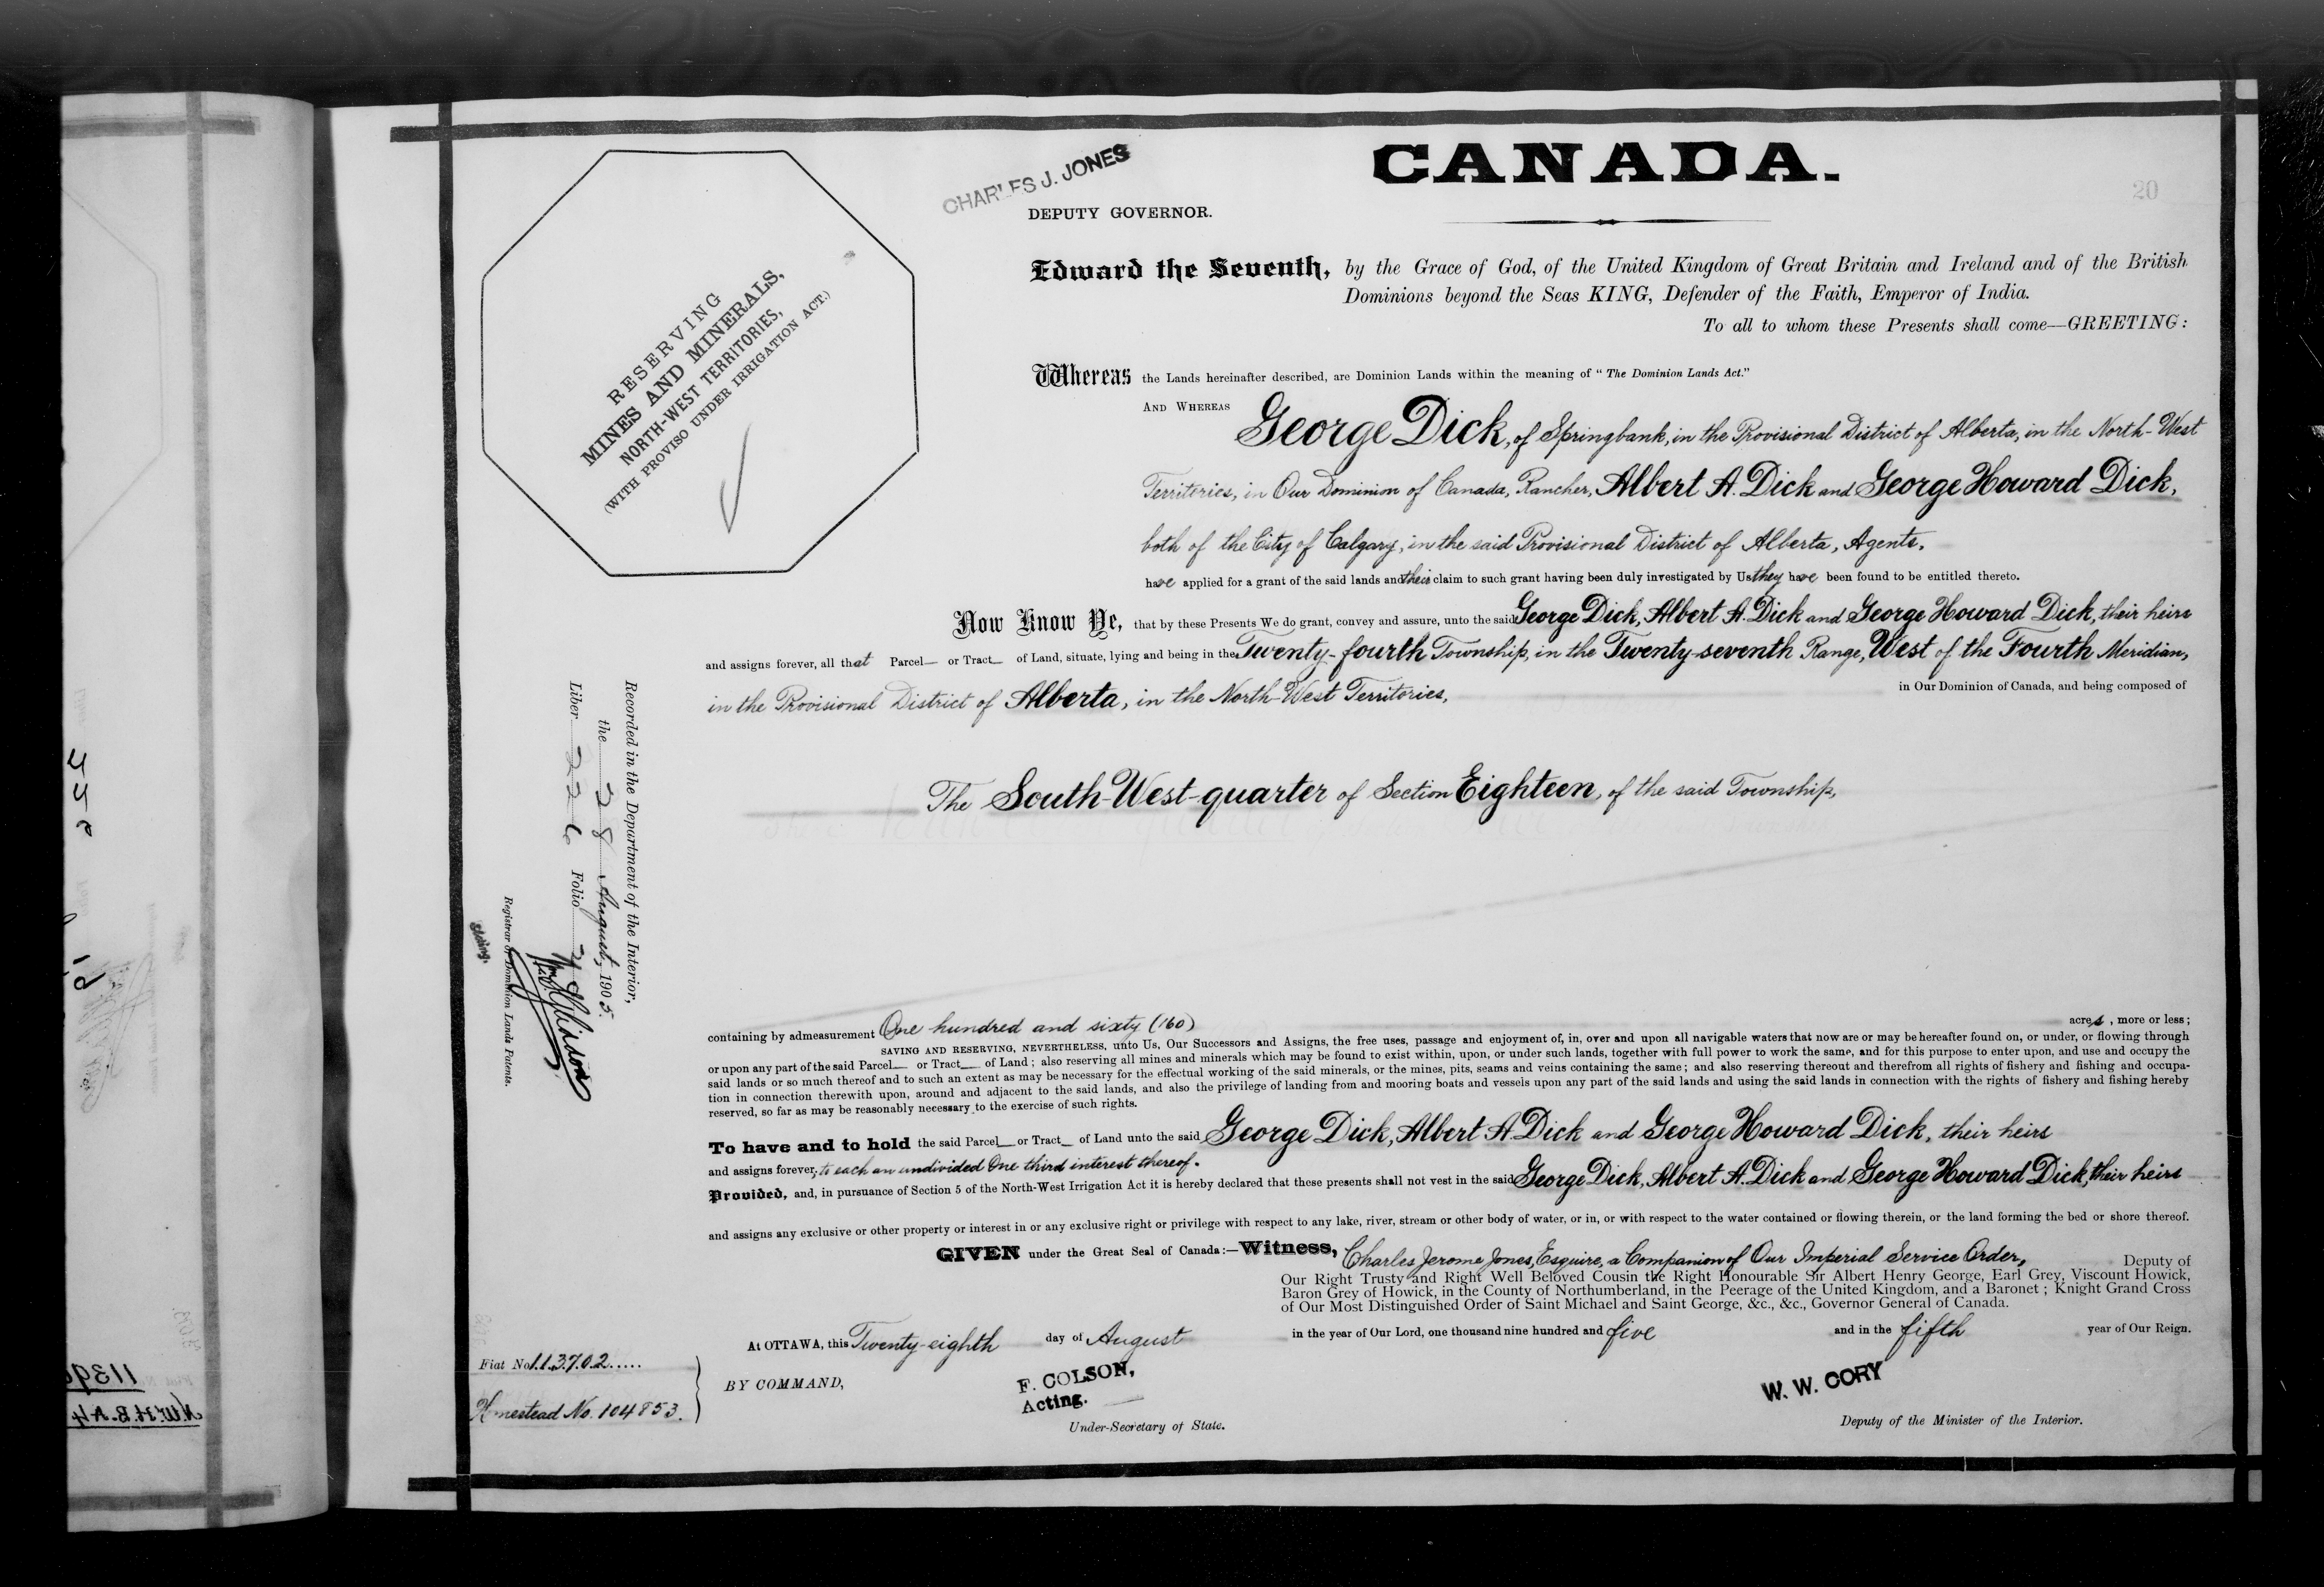 CHARLES J. JONES
DEPUTY GOVERNOR.
CANADA.
20
RESERVING
MINES AND MINERALS,
NORTH-WEST TERRITORIES,
(WITH PROVISO UNDER IRRIGATION ACT.)
Edward the Seventh, by the Grace of God, of the United Kingdom of Great Britain and Ireland and of the British
Dominions beyond the Seas KING, Defender of the Faith, Emperor of India.
To all to whom these Presents shall come—GREETING:
Whereas the Lands hereinafter described, are Dominion Lands within the meaning of "The Dominion Lands Act."
AND WHEREAS George Dick, of Springbank, in the Provisional District of Alberta, in the North-West
Territories, in Our Dominion of Canada, Rancher, Albert A. Dick and George Howard Dick,
both of the City of Calgary, in the said Provisional District of Alberta, Agents,
have applied for a grant of the said lands and their claim to such grant having been duly investigated by Us they have been found to be entitled thereto.
Now Know Ye, that by these Presents We do grant, convey and assure, unto the said George Dick, Albert A. Dick and George Howard Dick, their heirs
and assigns forever, all that Parcel or Tract of Land, situate, lying and being in the Twenty-fourth Township, in the Twenty-seventh Range, West of the Fourth Meridian,
in the Provisional District of Alberta, in the North-West Territories, in Our Dominion of Canada, and being composed of
The South-West-quarter of Section Eighteen, of the said Township,
Recorded in the Department of the Interior,
the 28 August, 1905.
Liber 226 Folio
Registrar of Dominion Lands Patents.
containing by admeasurement One hundred and sixty (160) acres, more or less;
SAVING AND RESERVING, NEVERTHELESS, unto Us, Our Successors and Assigns, the free uses, passage and enjoyment of, in, over and upon all navigable waters that now are or may be hereafter found on, or under, or flowing through
or upon any part of the said Parcel or Tract of Land; also reserving all mines and minerals which may be found to exist within, upon, or under such lands, together with full power to work the same, and for this purpose to enter upon, and use and occupy the
said lands or so much thereof and to such an extent as may be necessary for the effectual working of the said minerals, or the mines, pits, seams and veins containing the same; and also reserving thereout and therefrom all rights of fishery and fishing and occupa-
tion in connection therewith upon, around and adjacent to the said lands, and also the privilege of landing from and mooring boats and vessels upon any part of the said lands and using the said lands in connection with the rights of fishery and fishing hereby
reserved, so far as may be reasonably necessary to the exercise of such rights.
To have and to hold the said Parcel or Tract of Land unto the said George Dick, Albert A. Dick and George Howard Dick, their heirs
and assigns forever, to each an undivided One third interest thereof.
Provided, and, in pursuance of Section 5 of the North-West Irrigation Act it is hereby declared that these presents shall not vest in the said George Dick, Albert A. Dick and George Howard Dick, their heirs
and assigns any exclusive or other property or interest in or any exclusive right or privilege with respect to any lake, river, stream or other body of water, or in, or with respect to the water contained or flowing therein, or the land forming the bed or shore thereof.
GIVEN under the Great Seal of Canada:—Witness, Charles Jerome Jones, Esquire, a Companion of Our Imperial Service Order, Deputy of
Our Right Trusty and Right Well Beloved Cousin the Right Honourable Sir Albert Henry George, Earl Grey, Viscount Howick,
Baron Grey of Howick, in the County of Northumberland, in the Peerage of the United Kingdom, and a Baronet; Knight Grand Cross
of Our Most Distinguished Order of Saint Michael and Saint George, &c., &c., Governor General of Canada.
At OTTAWA, this Twenty-eighth day of August in the year of Our Lord, one thousand nine hundred and five and in the fifth year of Our Reign.
Fiat No. 113702.....
Homestead No. 104853.
BY COMMAND,
F. COLSON,
Acting.
Under-Secretary of State.
W. W. CORY
Deputy of the Minister of the Interior.